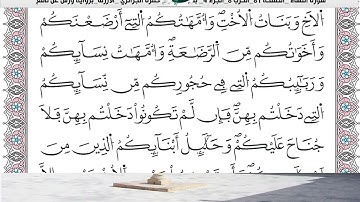 الاَخِ وَبَنَاتُ الُاخْتِ وَأُمَّهَٰتُكُمُ التِےٓ أَرْضَعْنَكُمْ
وَأَخَوَٰتُكُم مِّنَ اَلرَّضَٰعَةِ وَأُمَّهَٰتُ نِسَآئِكُمْ
وَرَبَٰٓئِبُكُمُ التِے فِے حُجُورِكُم مِّن نِّسَآئِكُمُ
التِے دَخَلْتُم بِهِنَّ فَإِن لَّمْ تَكُونُواْ دَخَلْتُم بِهِنَّ فَلَا
جُنَاحَ عَلَيْكُمْ وَحَلَٰٓئِلُ أَبْنَآئِكُمُ الذِينَ مِنَ